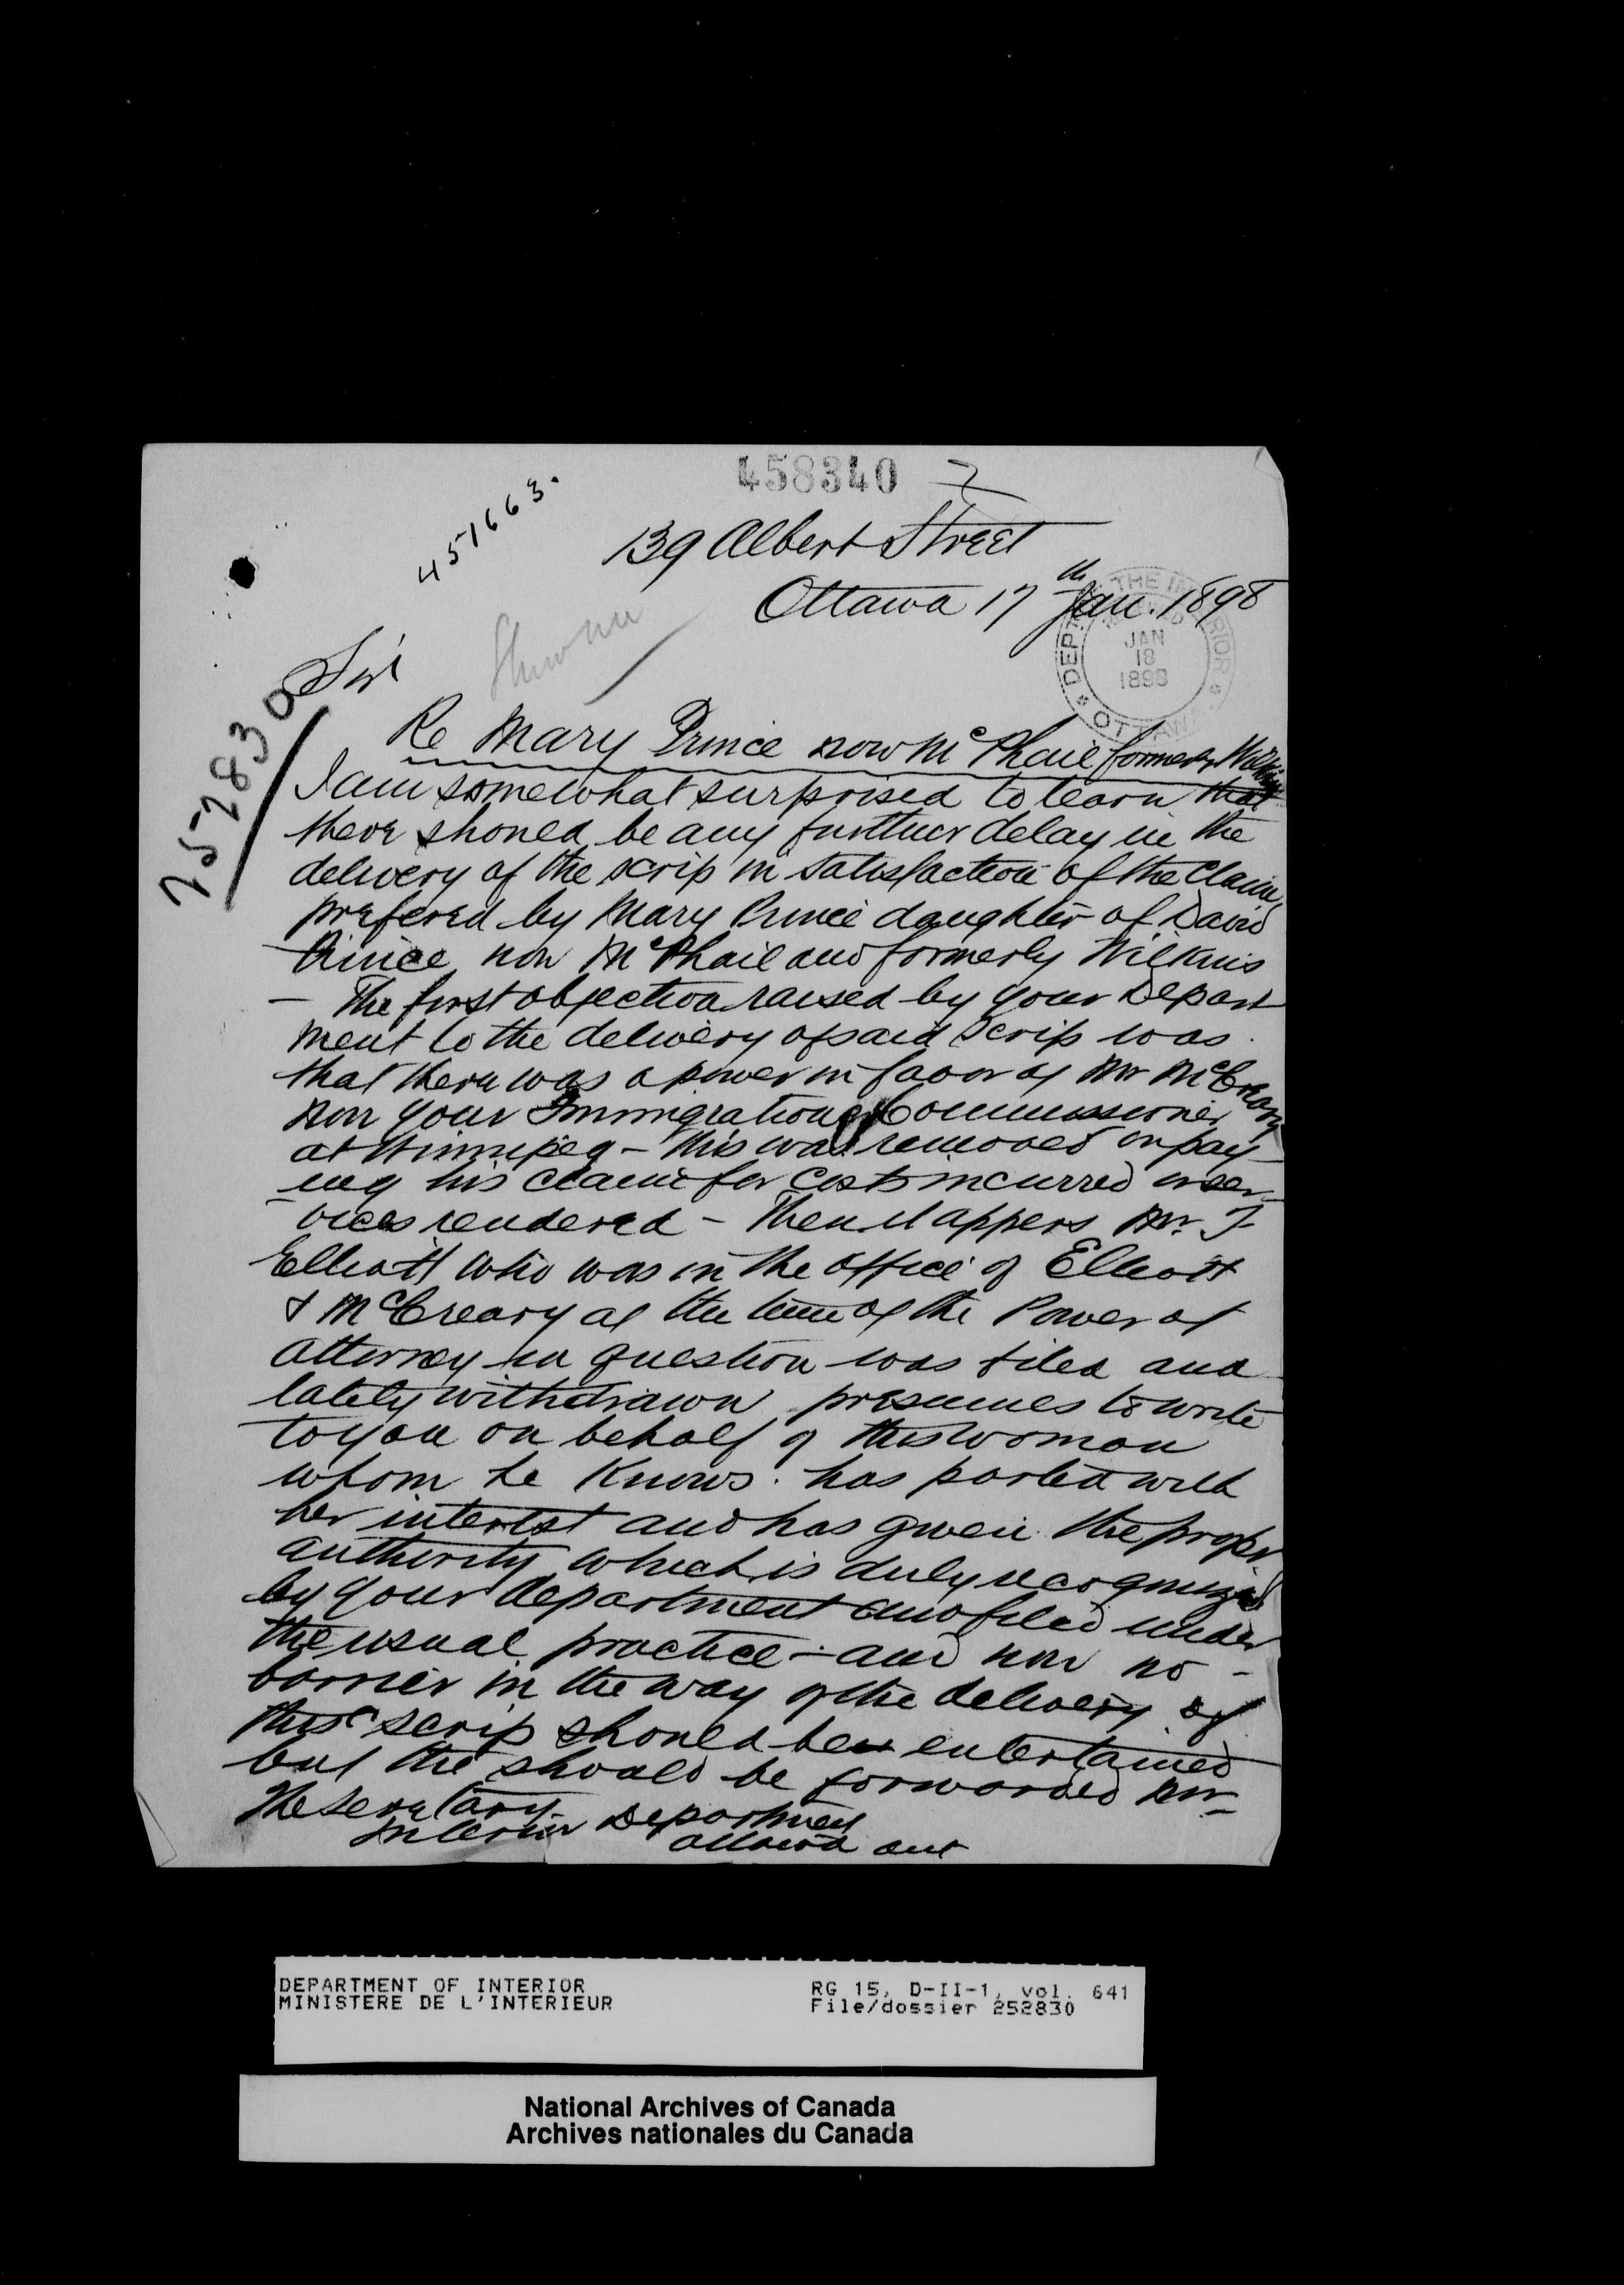 458340
451663.
139 Albert Street
Ottawa 17th Jan. 1898
DEPT. OF THE INTERIOR
JAN
18
1898
OTTAWA
Sir
252830
Re Mary Prince now McPhail formerly Wilkins
I am somewhat surprised to learn that
there should be any further delay in the
delivery of the scrip in satisfaction of the claim
prefered by Mary Prince daughter of David
Prince now McPhail and formerly Wilkins
— The first objection raised by your Depart
ment to the delivery of said scrip was
that there was a power in favor of Mr McCreary
now your Immigration Commissioner
at Winnipeg – this was removed on pay
ing his claim for costs incurred or ser-
vices rendered – Then it appers Mr. J
Elliott who was in the office of Elliott
& McCreary at the time of the Power of
attorney in question was filed and
lately withdrawn presumes to write
to you on behalf of this woman
whom he knows has parted with
her interest and has given the proper
authority which is duly recognized
by your department and filed under
the usual practice – and now no -
barrier in the way of the delivery of
this scrip should be entertained
but the should be forwarded Mr
The Secretary
Interior Department
Ottawa Ont
DEPARTMENT OF INTERIOR
MINISTERE DE L'INTERIEUR
RG 15, D-II-1, vol. 641
File/dossier 252830
National Archives of Canada
Archives nationales du Canada